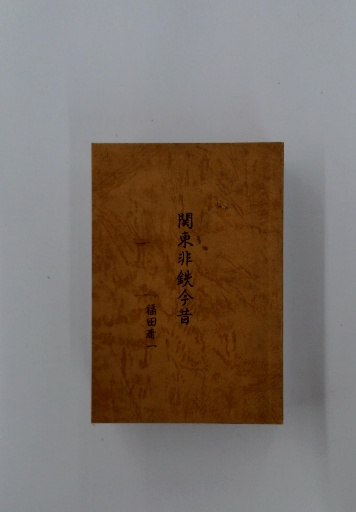 関東非鉄今昔
福田